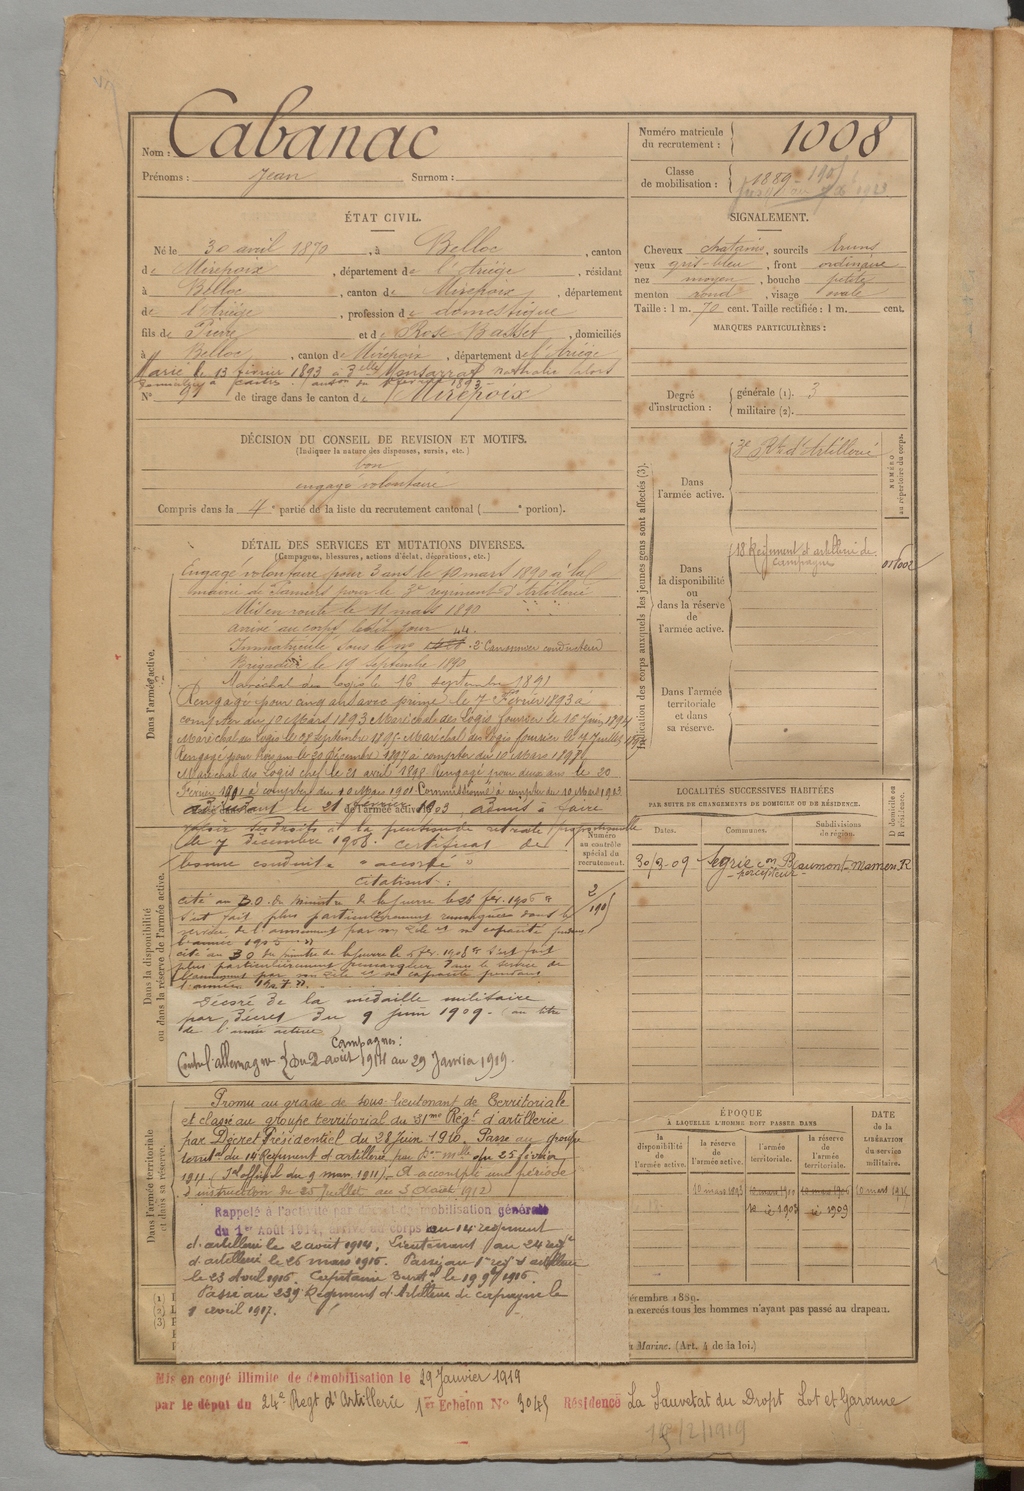 Nom : Cabanac
Prénoms : Jean Surnom :
Numéro matricule du recrutement : 1008
Classe de mobilisation : 1889
ÉTAT CIVIL.
Né le 30 avril 1870, à Belloc, canton
de Mirepoix, département de l'Ariège, résidant
à Belloc, canton de Mirepoix, département
de l'Ariège, profession de domestique
fils de Pierre et de Rose Basset, domiciliés
à Belloc, canton de Mirepoix, département de l'Ariège
Marié le 13 février 1893 à Melle Monsarrat Nathalie
N° 97 de tirage dans le canton de Mirepoix
SIGNALEMENT.
Cheveux chatains, sourcils bruns
yeux gris-bleu, front ordinaire
nez moyen, bouche petite
menton rond, visage ovale
Taille : 1 m. 70 cent. Taille rectifiée : 1 m. cent.
MARQUES PARTICULIÈRES :
Degré d'instruction : générale (1). 3
militaire (2).
DÉCISION DU CONSEIL DE REVISION ET MOTIFS.
(Indiquer la nature des dispenses, sursis, etc.)
bon
engagé volontaire
Compris dans la 4e partie de la liste du recrutement cantonal ( e portion).
Indication des corps auxquels les jeunes gens sont affectés (3).
NUMÉRO au répertoire du corps.
Dans l'armée active.
3e Rt d'Artillerie
Dans la disponibilité ou dans la réserve de l'armée active.
18 Régiment d'artillerie de campagne
Dans l'armée territoriale et dans sa réserve.
DÉTAIL DES SERVICES ET MUTATIONS DIVERSES.
(Campagnes, blessures, actions d'éclat, décorations, etc.)
Dans l'armée active.
Engagé volontaire pour 3 ans le 10 mars 1890 à la
mairie de Pamiers pour le 3e régiment d'Artillerie
Mis en route le 11 mars 1890
arrivé au corps le dit jour
Immatriculé sous le no 44. 2e Canonnier conducteur
Brigadier le 19 septembre 1890
Maréchal des logis le 16 septembre 1891
Rengagé pour cinq ans avec prime le 7 Février 1893 à
compter du 10 Mars 1893. Maréchal des Logis fourrier le 16 Juin 1894
Maréchal des Logis le 28 septembre 1895. Maréchal des Logis fourrier le 7 Juillet
Rengagé pour trois ans le 20 Décembre 1897 à compter du 10 Mars 1898
Maréchal des Logis chef le 21 avril 1898. Rengagé pour deux ans le 20
Février 1901 à compter du 10 Mars 1901. Commissionné à compter du 10 Mars 1903
adjudant le 21 février 1903. Admis à faire
valoir ses droits à la pension de retraite proportionnelle
le 7 décembre 1908. certificat de
bonne conduite "accordé"
Dans la disponibilité ou dans la réserve de l'armée active.
Numéro au contrôle spécial du recrutement.
Citations :
cité au B.O. du Ministre de la Guerre le 26 fév. 1906
s'est fait plus particulièrement remarquer dans le
service de l'armement par son zèle et sa capacité pendant
l'année 1905 "
cité au B.O. du Ministre de la Guerre le fév. 1908 " s'est fait
plus particulièrement remarquer dans le service de
l'armement par son zèle et sa capacité pendant
l'année 1907 ".
Décoré de la médaille militaire
par décret du 9 juin 1909. (au titre
de l'armée active)
Campagnes :
Contre l'allemagne du 2 août 1914 au 29 Janvier 1919.
Dans l'armée territoriale et dans sa réserve.
Promu au grade de sous-lieutenant de Territoriale
et classé au groupe territorial du 31me Régt d'artillerie
par Décret Présidentiel du 28 Juin 1910. Passé au groupe
territal du 14 Régiment d'artillerie par Don mlle du 25 février
1911 (Jal officiel du 9 mars 1911). A accompli une période
d'instruction du 25 Juillet au 3 Août 1912
Rappelé à l'activité par décret de mobilisation générale
du 1er Août 1914, arrivé au corps au 14e régiment
d'artillerie le 2 août 1914. Lieutenant au 24e régt
d'artillerie le 26 mars 1916. Passé au 1er régt d'artillerie
le 23 Avril 1916. Capitaine
Passé au 239 Régiment d'Artillerie de campagne le
1 avril 1917.
LOCALITÉS SUCCESSIVES HABITÉES
PAR SUITE DE CHANGEMENTS DE DOMICILE OU DE RÉSIDENCE.
Dates. Communes. Subdivisions de région. D domicile ou R résidence.
30/3-09 percepteur R
ÉPOQUE
À LAQUELLE L'HOMME DOIT PASSER DANS
la disponibilité de l'armée active. la réserve de l'armée active. l'armée territoriale. la réserve de l'armée territoriale.
DATE de la LIBÉRATION du service militaire.
10 mars 1893 10 mars 1910
décembre 1889.
n exercés tous les hommes n'ayant pas passé au drapeau.
Marine. (Art. 4 de la loi.)
Mis en congé illimité de démobilisation le 29 Janvier 1919
par le dépôt du 24e Regt d'Artillerie 1er Echelon No 3045 Résidence La Sauvetat du Dropt Lot et Garonne